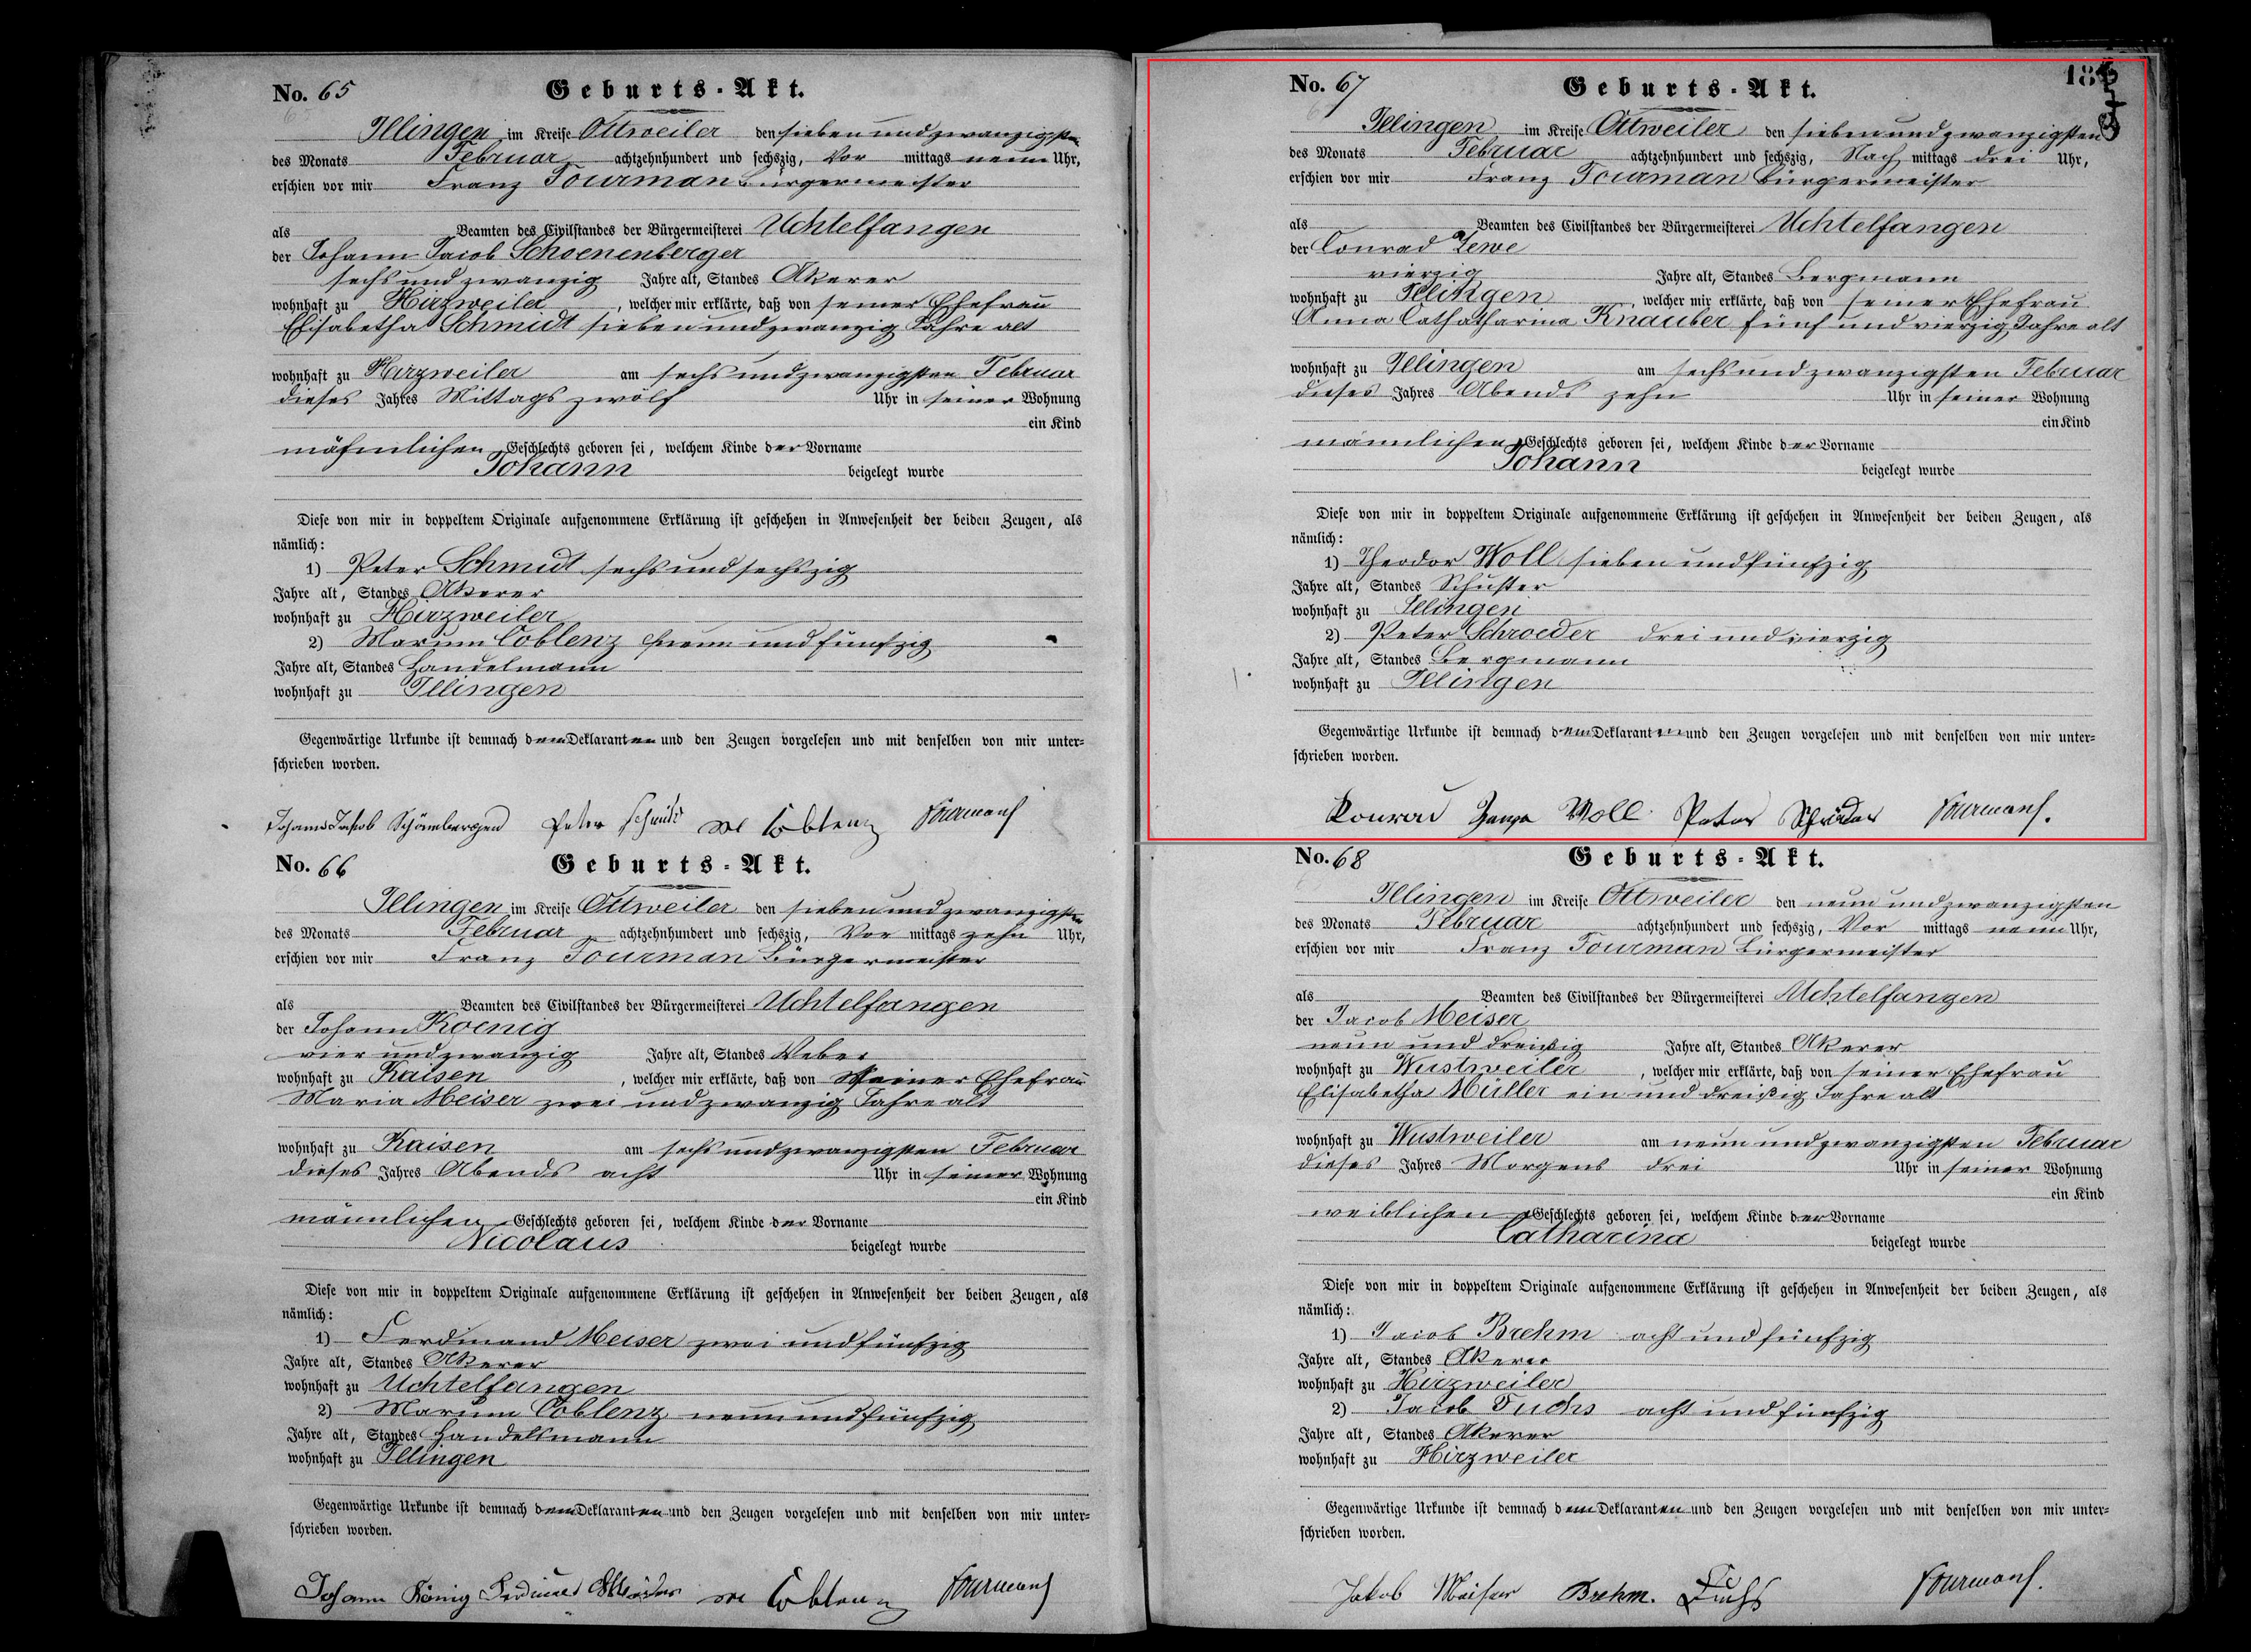 No. 65 Geburts-Akt.
Illingen im Kreise Ottweiler den siebenundzwanzigsten
des Monats Februar achtzehnhundert und sechszig, Vor mittags neun Uhr,
erschien vor mir Franz Fourman Bürgermeister
als Beamten des Civilstandes der Bürgermeisterei Uchtelfangen
der Johann Jacob Schoenenberger
sechsundzwanzig Jahre alt, Standes Akerer
wohnhaft zu Hirzweiler, welcher mir erklärte, daß von seiner Ehefrau
Elisabetha Schmidt siebenundzwanzig Jahre alt
wohnhaft zu Hirzweiler am sechsundzwanzigsten Februar
dieses Jahres Mittags zwölf Uhr in seiner Wohnung
ein Kind
männlichen Geschlechts geboren sei, welchem Kinde der Vorname
Johann beigelegt wurde
Diese von mir in doppeltem Originale aufgenommene Erklärung ist geschehen in Anwesenheit der beiden Zeugen, als
nämlich:
1) Peter Schmidt sechsundsechszig
Jahre alt, Standes Akerer
wohnhaft zu Hirzweiler
2) Marum Coblenz neunundfünfzig
Jahre alt, Standes Handelmann
wohnhaft zu Illingen
Gegenwärtige Urkunde ist demnach dem Deklaranten und den Zeugen vorgelesen und mit denselben von mir unter-
schrieben worden.
Johann Jakob Peter Schmidt Coblenz Fourman
No. 66 Geburts-Akt.
Illingen im Kreise Ottweiler den siebenundzwanzigsten
des Monats Februar achtzehnhundert und sechszig, Vor mittags zehn Uhr,
erschien vor mir Franz Fourman Bürgermeister
als Beamten des Civilstandes der Bürgermeisterei Uchtelfangen
der Johann Koenig
vierundzwanzig Jahre alt, Standes Weber
wohnhaft zu Kaisen, welcher mir erklärte, daß von seiner Ehefrau
Maria Meiser zweiundzwanzig Jahre alt
wohnhaft zu Kaisen am sechsundzwanzigsten Februar
dieses Jahres Abends acht Uhr in seiner Wohnung
ein Kind
männlichen Geschlechts geboren sei, welchem Kinde der Vorname
Nicolaus beigelegt wurde
Diese von mir in doppeltem Originale aufgenommene Erklärung ist geschehen in Anwesenheit der beiden Zeugen, als
nämlich:
1) Ferdinand Meiser zweiundfünfzig
Jahre alt, Standes Akerer
wohnhaft zu Uchtelfangen
2) Marum Coblenz neunundfünfzig
Jahre alt, Standes Handelsmann
wohnhaft zu Illingen
Gegenwärtige Urkunde ist demnach dem Deklaranten und den Zeugen vorgelesen und mit denselben von mir unter-
schrieben worden.
Johann König Ferdinand Meiser Coblenz Fourman
No. 67 Geburts-Akt.
Illingen im Kreise Ottweiler den siebenundzwanzigsten
des Monats Februar achtzehnhundert und sechszig, Nach mittags drei Uhr,
erschien vor mir Franz Fourman Bürgermeister
als Beamten des Civilstandes der Bürgermeisterei Uchtelfangen
der Conrad Zewe
vierzig Jahre alt, Standes Bergmann
wohnhaft zu Illingen, welcher mir erklärte, daß von seiner Ehefrau
Anna Cathatharina Knauber fünfundvierzig Jahre alt
wohnhaft zu Illingen am sechsundzwanzigsten Februar
dieses Jahres Abends zehn Uhr in seiner Wohnung
ein Kind
männlichen Geschlechts geboren sei, welchem Kinde der Vorname
Johann beigelegt wurde
Diese von mir in doppeltem Originale aufgenommene Erklärung ist geschehen in Anwesenheit der beiden Zeugen, als
nämlich:
1) Theodor Woll siebenundfünfzig
Jahre alt, Standes Schuster
wohnhaft zu Illingen
2) Peter Schroeder dreiundvierzig
Jahre alt, Standes Bergmann
wohnhaft zu Illingen
Gegenwärtige Urkunde ist demnach dem Deklaranten und den Zeugen vorgelesen und mit denselben von mir unter-
schrieben worden.
Konrad Woll Peter Schröder Fourman
No. 68 Geburts-Akt.
Illingen im Kreise Ottweiler den neunundzwanzigsten
des Monats Februar achtzehnhundert und sechszig, Vor mittags neun Uhr,
erschien vor mir Franz Fourman Bürgermeister
als Beamten des Civilstandes der Bürgermeisterei Uchtelfangen
der Jacob Meiser
neun und dreißig Jahre alt, Standes Akerer
wohnhaft zu Wustweiler, welcher mir erklärte, daß von seiner Ehefrau
Elisabetha Müller ein und dreißig Jahre alt
wohnhaft zu Wustweiler am neunundzwanzigsten Februar
dieses Jahres Morgens drei Uhr in seiner Wohnung
ein Kind
weiblichen Geschlechts geboren sei, welchem Kinde der Vorname
Catharina beigelegt wurde
Diese von mir in doppeltem Originale aufgenommene Erklärung ist geschehen in Anwesenheit der beiden Zeugen, als
nämlich:
1) Jacob Brehm acht und fünfzig
Jahre alt, Standes Akerer
wohnhaft zu Hirzweiler
2) Jacob Fuchs acht und fünfzig
Jahre alt, Standes Akerer
wohnhaft zu Hirzweiler
Gegenwärtige Urkunde ist demnach dem Deklaranten und den Zeugen vorgelesen und mit denselben von mir unter-
schrieben worden.
Jakob Meiser Brehm. Fuchs Fourman